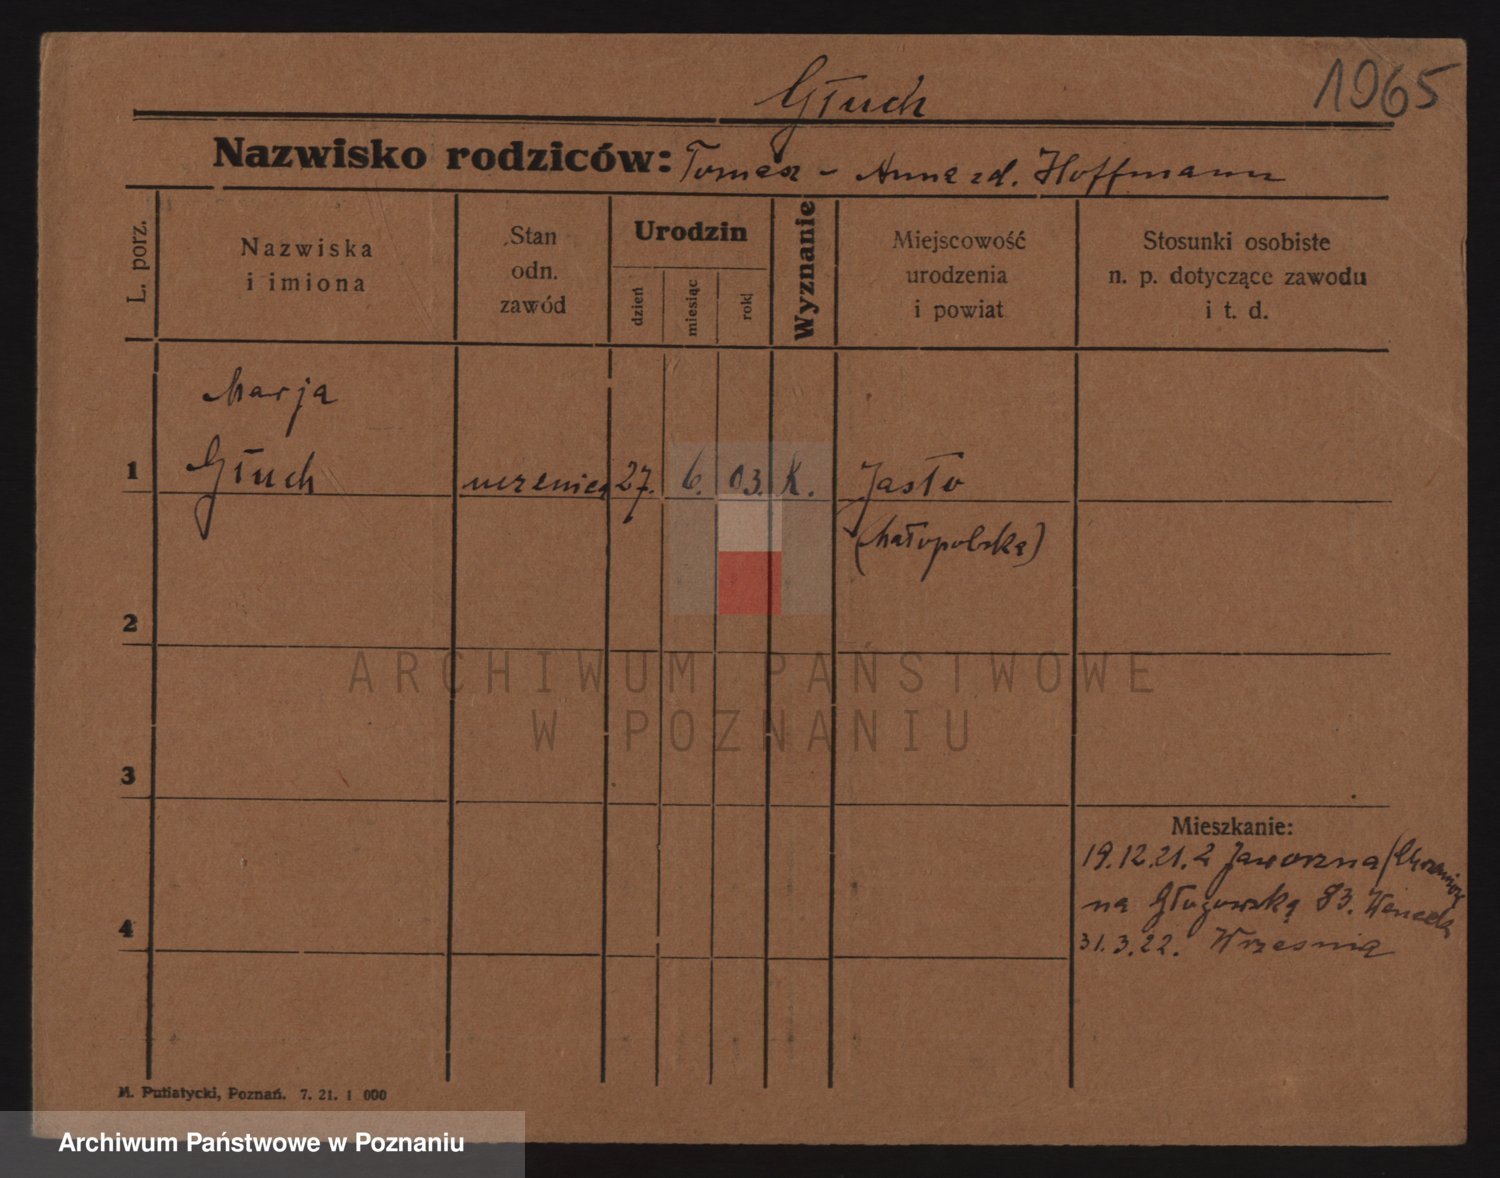 Głuch
1965
Nazwisko rodziców: Tomasz - Anna zd. Hoffmann
L. porz.
Nazwiska
i imiona
Stan
odn.
zawód
Urodzin
dzień
miesiąc
rok
Wyznanie
Miejscowość
urodzenia
i powiat
Stosunki osobiste
n. p. dotyczące zawodu
i t. d.
Marja
1 Głuch uczenica 27. 6. 03. K. Jasło
(Małopolska)
2
ARCHIWUM PAŃSTWOWE
W POZNANIU
3
Mieszkanie:
19.12.21. z Jaworzna
na Głogowską 83.
4
31.3.22. Września
M. Putiatycki, Poznań. 7. 21. 1 000
Archiwum Państwowe w Poznaniu